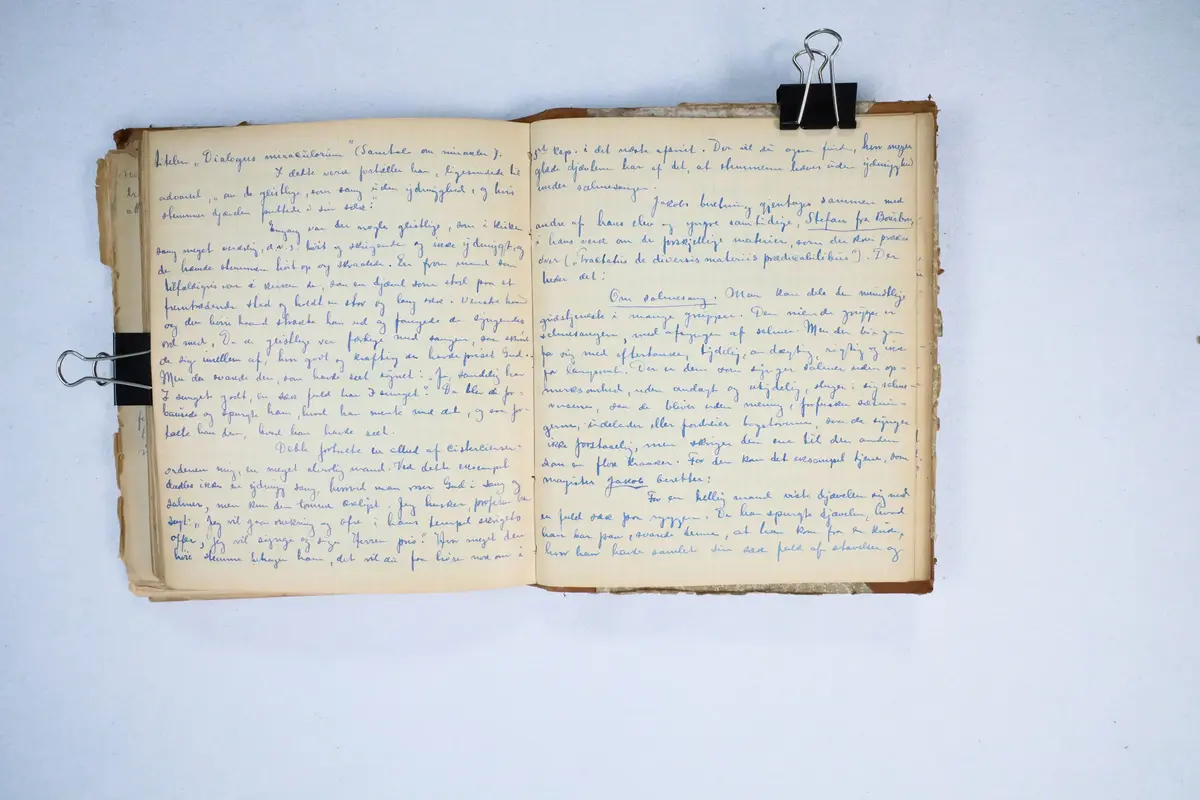 titelen „Dialogus miraculorum" (Samtale om miracler).
I dette værk fortæller han, ligesaadede til
advarsel, „om de geistlige, som sang uden ydmyghed, og hvis
stemmer djævlen puttede i sin sæk."
Engang var der nogle geistlige, som i kirken
sang meget verdslig, d.v.s. höit og skrigende og ikke ydmygt, og
de hævede stemmen höit op og skraalede. En from mand som
tilfældigvis var i kirken så, saa en djævel som stod paa et
fremtrædende sted og holdt en stor og lang sæk i venstre haand
og den höire haand strakte han ud og fangede de syngendes
ord med. Da de geistlige var færdige med sangen, saa
de sig imellem af, hvor godt og kraftig de havde priset Gud.
Men da svarede den, som havde seet synet: „Ja, sandelig har
I sunget godt, en sæk fuld har I sunget!" Da blev de for-
bausede og spurgte ham, hvad han mente med det, og saa for-
talte han dem, hvad han havde seet.
Dette fortalte en abbed af Cistercienser-
ordenen mig, en meget alvorlig mand. Ved dette eksempel
dadles ikke en ydmyg sang, hvorved man roser Gud i sang og
salmer, men kun den tomme
sagt: „Jeg vil gaa omkring og ofre i hans tempel skrigets
offer, jeg vil synge og sige Herren pris." Hvor meget den
höie stemme behager ham, det vil du faa höre mer om i
5te kap. i det næste afsnit. Der vil du ogsaa finde, hvor megen
glæde djævlene har af det, at stemmerne hæves uden ydmyghed
under salmesangen.
Jacobs beretning gjentages sammen med
andre af hans elev og yngre samtidige, Stefan fra Bourbon,
i hans værk om de forskjellige materier, som der kan prækes
over („Tractatus de diversis materiis prædicabilibus"). Der
heder det:
Om salmesang. Man kan dele den mundtlige
gudstjeneste i mange grupper. Den niende gruppe er
salmesangen, med afsyngen af salmer. Men den bör gaa
for sig med eftertanke, tydelig, andægtig, rigtig og ikke
for langsomt. Der er dem som synger salmer uden op-
mærksomhed, uden andagt og utydelig, sluger i sig salme-
versene, saa de bliver uden mening, forfusker sætnin-
gerne, udelader eller fordreier bogstaverne, saa de synger
ikke forstaaelig, men skriger den ene til den anden
som en flok kraaker. For dem kan det eksempel tjene, som
magister Jacob beretter:
For en hellig mand viste djævelen sig med
en fuld sæk paa ryggen. Da han spurgte djævelen, hvad
han bar paa, svarede denne, at han kom fra en kirke,
hvor han havde samlet sin sæk fuld af stavelser og